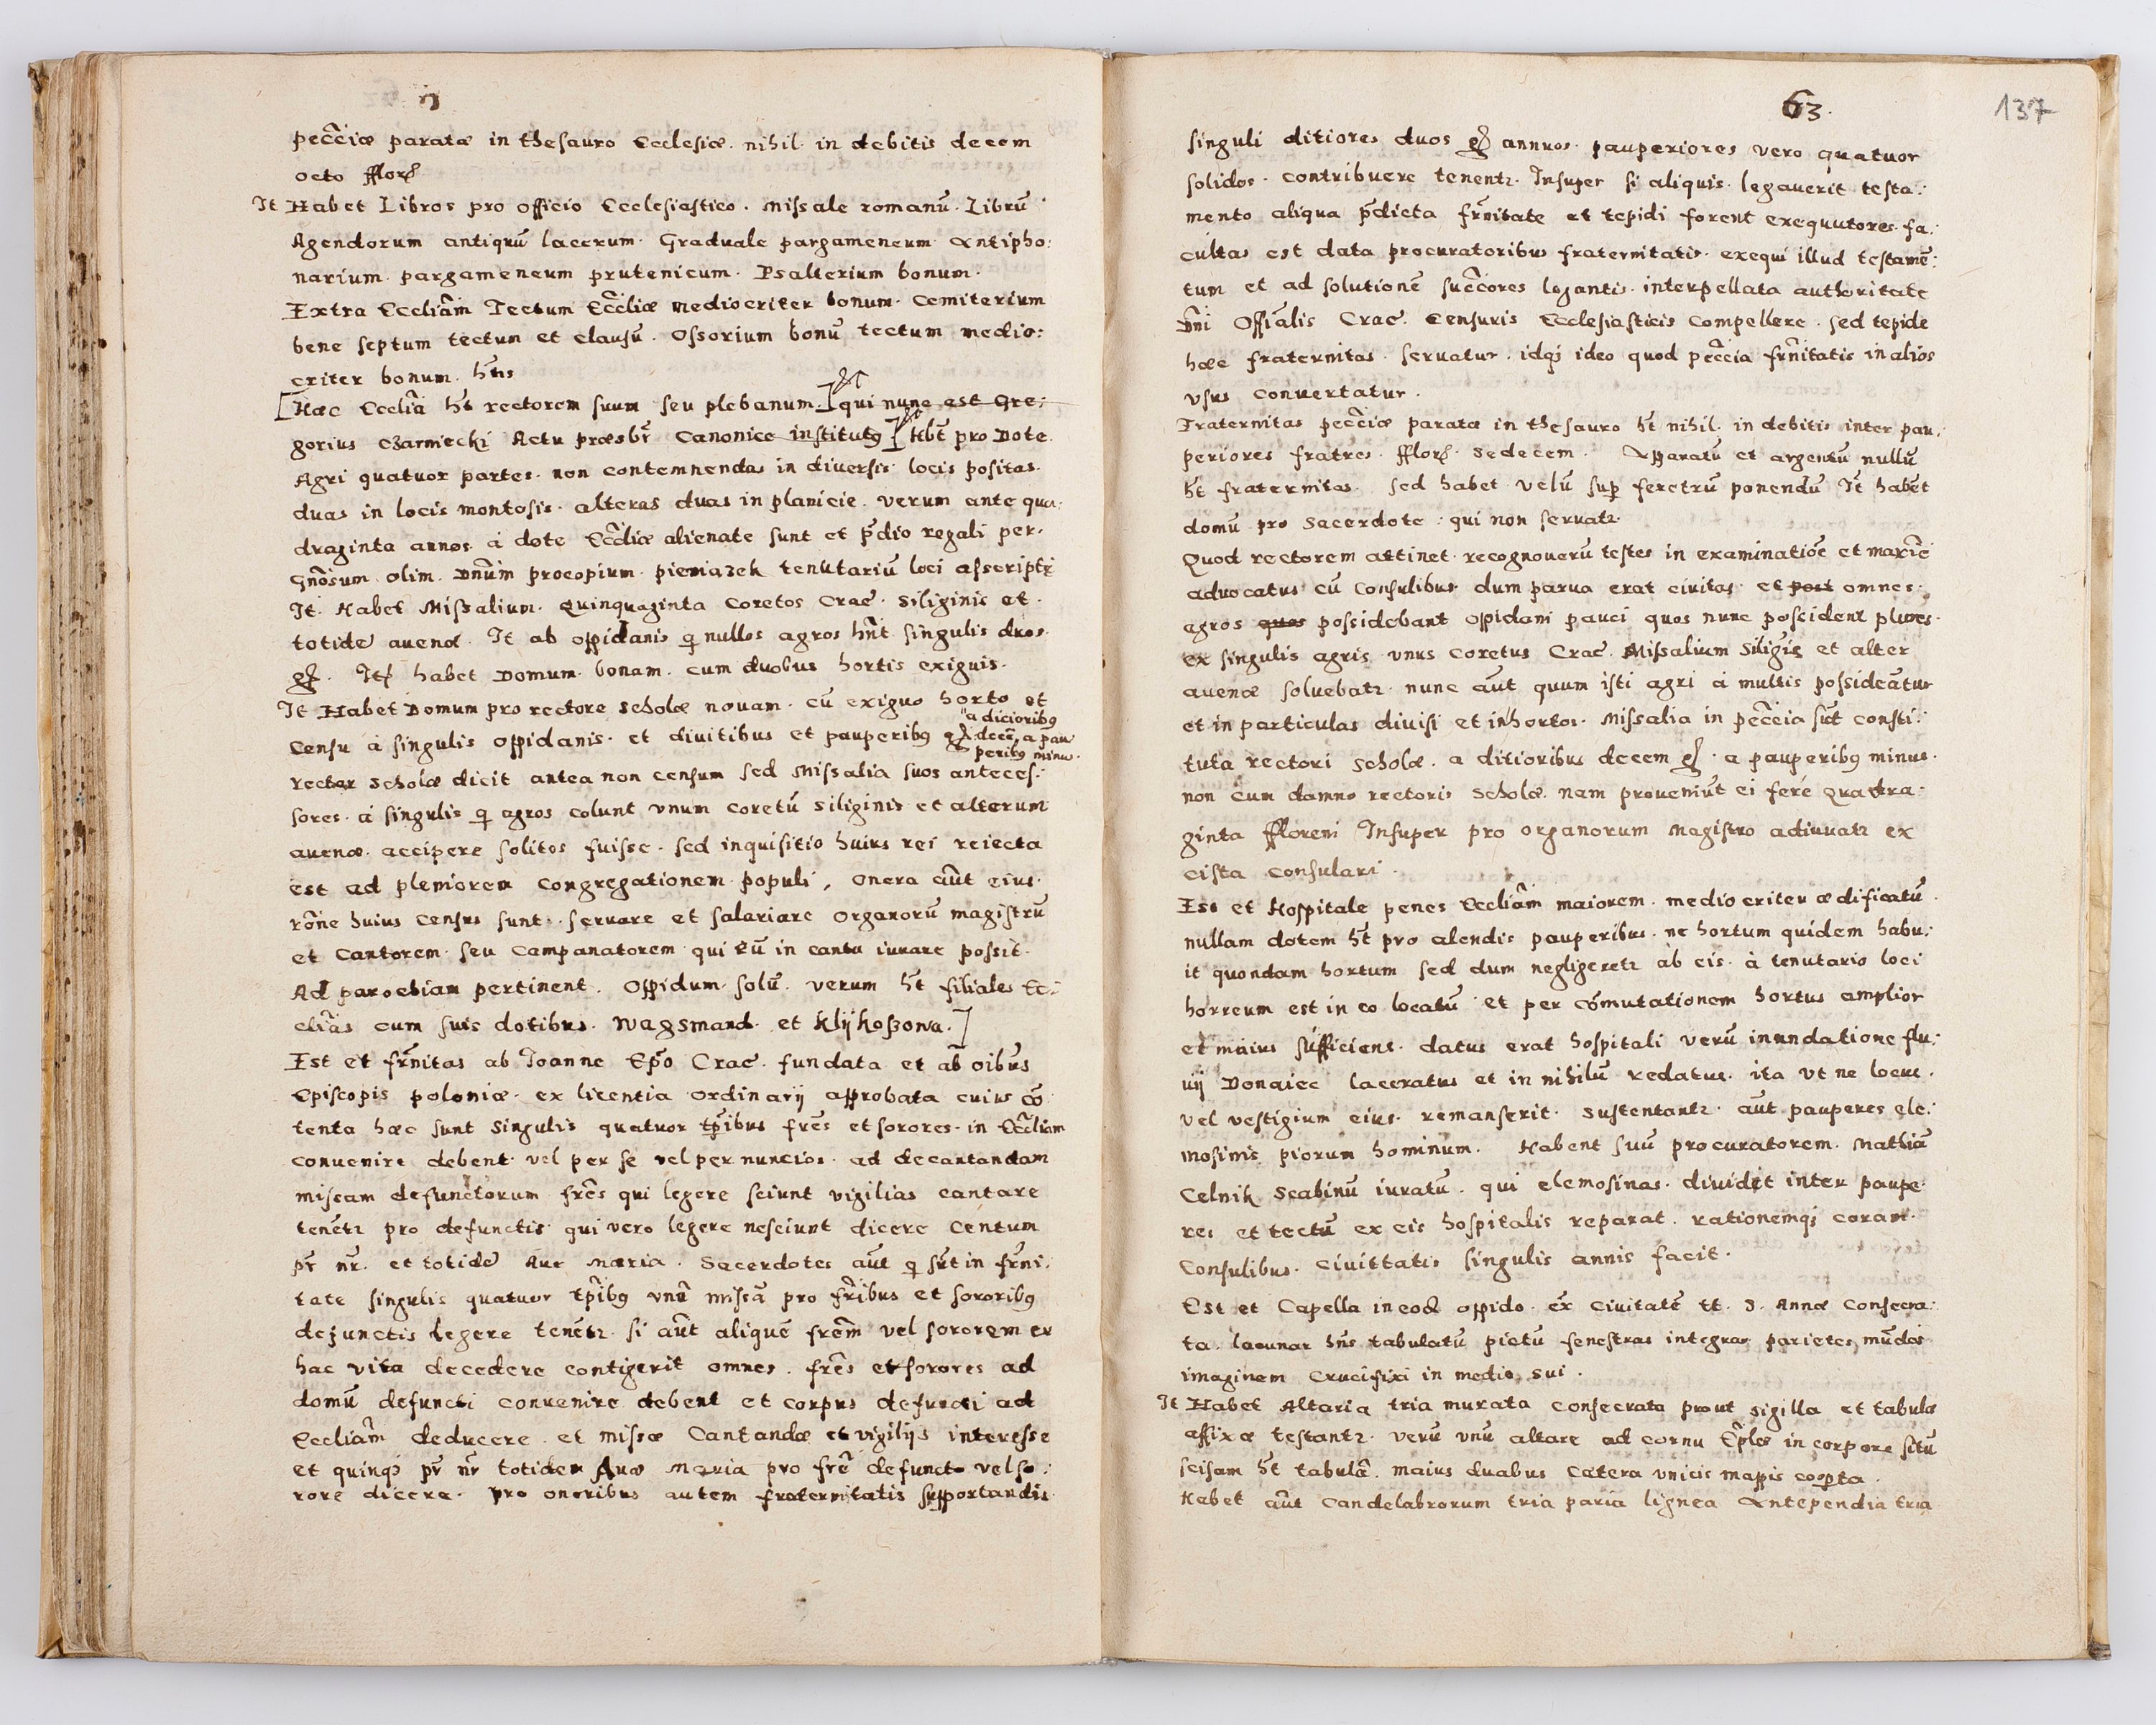 pecc̃iæ paratæ in thesauro Ecclesiæ. nihil. in debitis decem
octo fflor̃
It Habet Libros pro officio Ecclesiastico. Missale romanũ. Librũ
Agendorum antiquũ lacerum. Graduale pargameneum Antipho:
narium. pargameneum prutenicum. Psalterium bonum.
Extra Eccliãm Tectum Eccl̃iæ mediocriter bonum. Cemiterium
bene septum tectum et clausũ. Ossorium bonũ tectum medio:
criter bonum. hñs
[Hæc Ecclĩa h̃t rectorem suum seu plebanum.] qui nunc est Gre:
gorius Czarniecki Actu præsbr̃ Canonice institutq [Hbt̃ pro Dote
Agri quatuor partes. non contemnendas in diversis locis positas.
duas in locis montosis. alteras duas in planicie. verum ante qua:
draginta annos à dote Eccl̃iæ alienate sunt et p̃dio regali per.
gñosum olim. Dnũm procopium. pieniazek tenutariũ loci asscripte
It. Habet Missalium. Quinquaginta coretos Crac̃. Siliginis et.
totidẽ avenæ. It ab oppidanis q̃ nullos agros hñt singulis duos
gr̃. It̃ habet Domum. bonam. cum duobus hortis exiguis.
It Habet Domum pro rectore scholæ novam. cũ exiguo horto et
a dicioribq
Censu à singulis oppidanis. et divitibus et pauperibq gr̃ decẽ, a pau
peribq minu.
rector scholæ dicit antea non censum sed Missalia suos anteces:
sores. à singulis q̃ agros colunt vnum coretũ siliginis et alterum
avenæ. accipere solitos fuisse. sed inquisitio huius rei reiecta
est ad pleniorem congregationem populi, onera aũt eius.
rõne huius census sunt. servare et salariare organorũ magistrũ
et Cantorem. seu Campanatorem qui eũ in cantu iuvare possit.
Ad parochiam pertinent. Oppidum. solũ. verum h̃t filiales Ec:
clĩas cum suis dotibus. Wagsmand. et Klijkoszowa.]
Est et fr̃nitas ab Joanne Ep̃o Crac̃. fundata et ab oĩbus
Episcopis poloniæ. ex licentia ordinarij approbata cuius cõ
tenta hæc sunt Singulis quatuor tp̃ribus frẽs et sorores. in Eccl̃iam
convenire debent. vel per se vel per nuncios. ad decantandam
missam defunctorum frẽs qui legere sciunt vigilias cantare
tenẽtr pro defunctis. qui vero legere nesciunt dicere Centum
pr̃ nr̃. et totidẽ Ave Maria. Sacerdotes aũt q̃ sũt in fr̃ni:
tate singulis quatuor tp̃ribq vnã missã pro fr̃ibus et sororibq
defunctis legere tenẽtr. si aũt aliquẽ frẽm vel sororem ex
hac vita decedere contigerit omnes. frẽs et sorores ad
domũ defuncti convenire debent et corpus defuncti ad
Eccliãm deducere. et missæ Cantandæ et vigilijs interesse
et quinqj pr̃ nr̃ totidem Ave Maria pro frẽ defuncto vel so:
rore dicere. pro oneribus autem fraternitatis supportandis
63.
137
singuli ditiores duos gr̃ annuos. pauperiores vero quatuor
solidos. contribuere tenentr. Insuper si aliquis. legaverit testa:
mento aliqua p̃dicta fr̃nitate et tepidi forent exequutores. fa:
cultas est data procuratoribus fraternitatis. exequi illud testamẽ:
tum et ad solutionẽ succ̃ores legantis. interpellata authoritate
Dñi Offĩalis Crac̃. censuris Ecclesiasticis compellere. sed tepide
hæc fraternitas. servatur. idqj ideo quod pecc̃ia frñitatis in alios
vsus convertatur.
Fraternitas pecc̃iæ paratæ in thesauro h̃t nihil. in debitis inter pau:
periores fratres. fflor̃. sedecem. Apparatũ et argentũ nullũ
h̃t fraternitas. Sed habet velũ sup̃ feretrũ ponendũ It̃ habet
domũ pro Sacerdote. qui non servatr.
Quod rectorem attinet. recognoverũ testes in examinatiõe et maxiẽ
advocatus cũ Consulibus dum parva erat civitas. et post omnes.
agros quos possidebant oppidani pauci quos nunc possident plures.
ex singulis agris vnus coretus Crac̃. Missalium Siligĩs et alter
avenæ solvebatr. nunc aũt quum isti agri à multis possideãtur
et in particulas divisi et in hortos. Missalia in pecc̃ia sũt consti:
tuta rectori scholæ. a ditioribus decem gr̃. a pauperibq minus.
non cum damno rectoris scholæ. nam proveniũt ei ferè quadra:
ginta ffloreni Insuper pro organorum magistro adiuvatr ex
cista consulari.
Est et Hospitale penes Eccliãm maiorem. mediocriter ædificatũ.
nullam dotem h̃t pro alendis pauperibus. ne hortum quidem habu:
it quondam hortum sed dum negligeretr ab eis. à tenutario loci
horreum est in eo locatũ et per cõmutationem hortus amplior
et maius sufficiens. datus erat hospitali verũ inundatione flu:
vij Donaiec laceratus et in nihilũ redatus. ita vt ne locus.
vel vestigium eius. remanserit. sustentantr. aũt pauperes ele:
mosinis piorum hominum. Habent suũ procuratorem. Mathiã
Celnik Scabinũ iuratũ. qui elemosinas. dividit inter paupe.
res et tectũ ex eis hospitalis reparat. rationemqj coram.
Consulibus. Civittatis singulis annis facit.
Est et Capella in eod oppido. ex̃ Civitatẽ tt. S. Annæ Consecra:
ta. lacunar hñs tabulatũ pictũ fenestras integras parietes mũdos
imaginem Crucifixi in medio sui.
It Habet Altaria tria murata consecrata prout sigilla et tabulæ
affixæ testantr. verũ vnũ altare ad cornu Ep̃læ in corpore sitũ
scisam h̃t tabulã. maius duabus cætera vnicis mappis coop̃ta.
Habet aũt Candelabrorum tria paria lignea Antependia tria